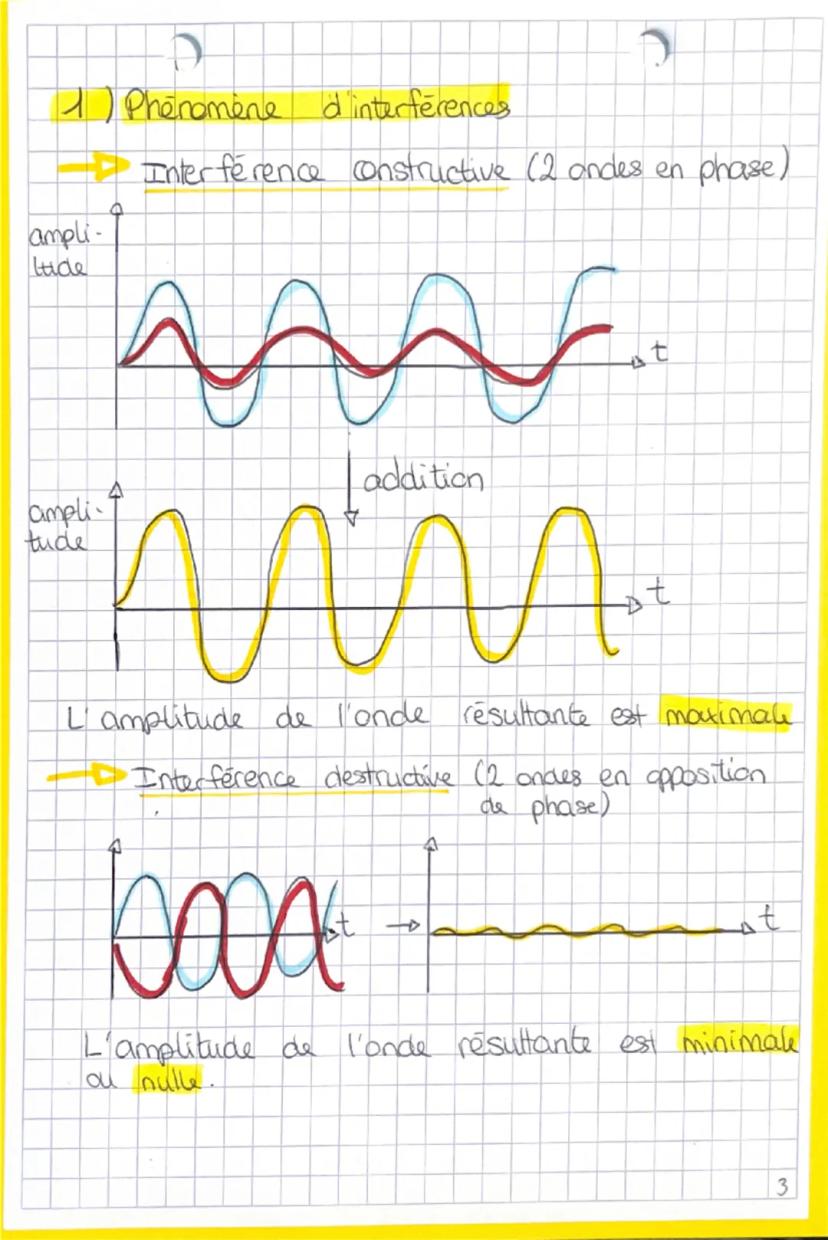 1) Phénomène d'interférences
Interférence constructive (2 ondes en phase)
ampli-
tude
t
addition
ampli-
tude
t
L'amplitude de l'onde résultante est maximale
Interférence destructive (2 ondes en opposition
de phase)
t
t
L'amplitude de l'onde résultante est minimale
ou nulle.
3